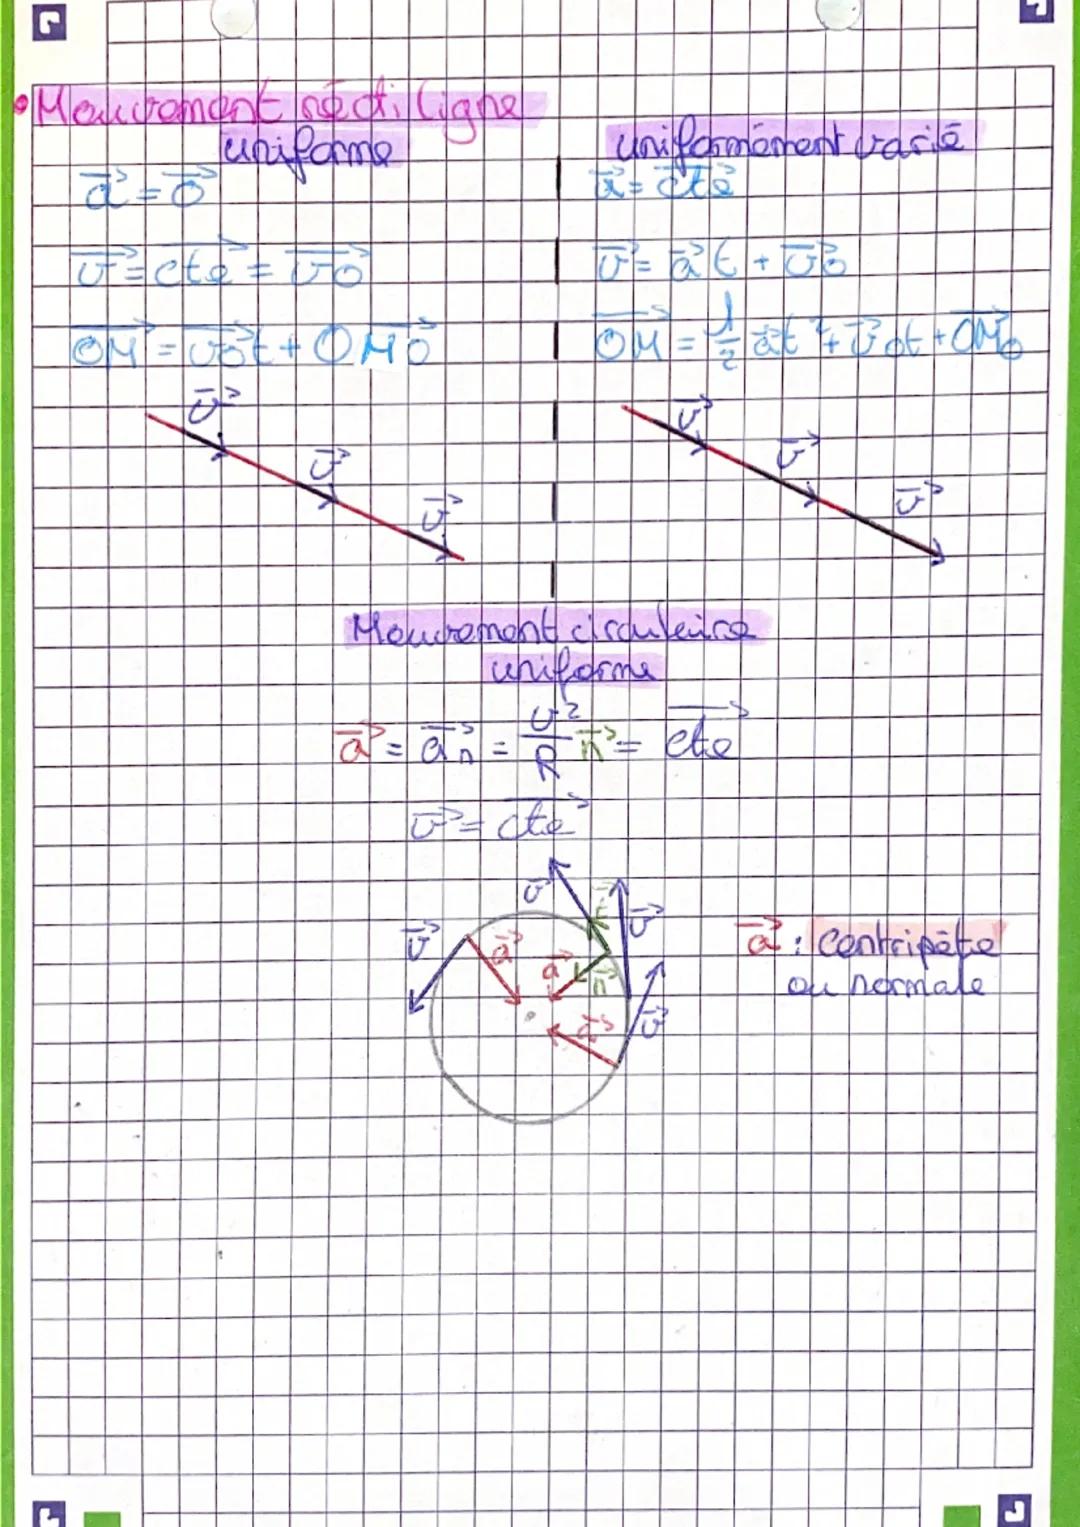 • Mouvement rectiligne
uniforme
a⃗ = 0⃗
v⃗ = cte⃗ = v0⃗
OM⃗ = v0⃗t + OM0⃗
v⃗
v⃗
v⃗
uniformément varié
a⃗ = cte⃗
v⃗ = a⃗ t + v⃗0
OM⃗ = 1/2 a⃗t² + v⃗0t + OM⃗0
v⃗
v⃗
v⃗
Mouvement circulaire
uniforme
a⃗ = a⃗n = v²/R n⃗ = cte⃗
v⃗ = cte⃗
v⃗ a⃗ v⃗ t⃗ v⃗
a⃗ n⃗
a⃗ v⃗
a⃗ : Centripète
ou normale